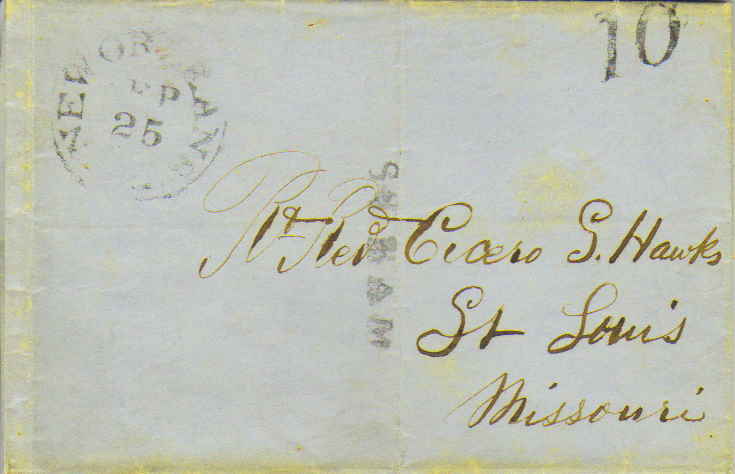 NEW ORLEANS
SEP
25
10
STEAM
Rt. Rev'd Cicero S. Hawks
St Louis
Missouri